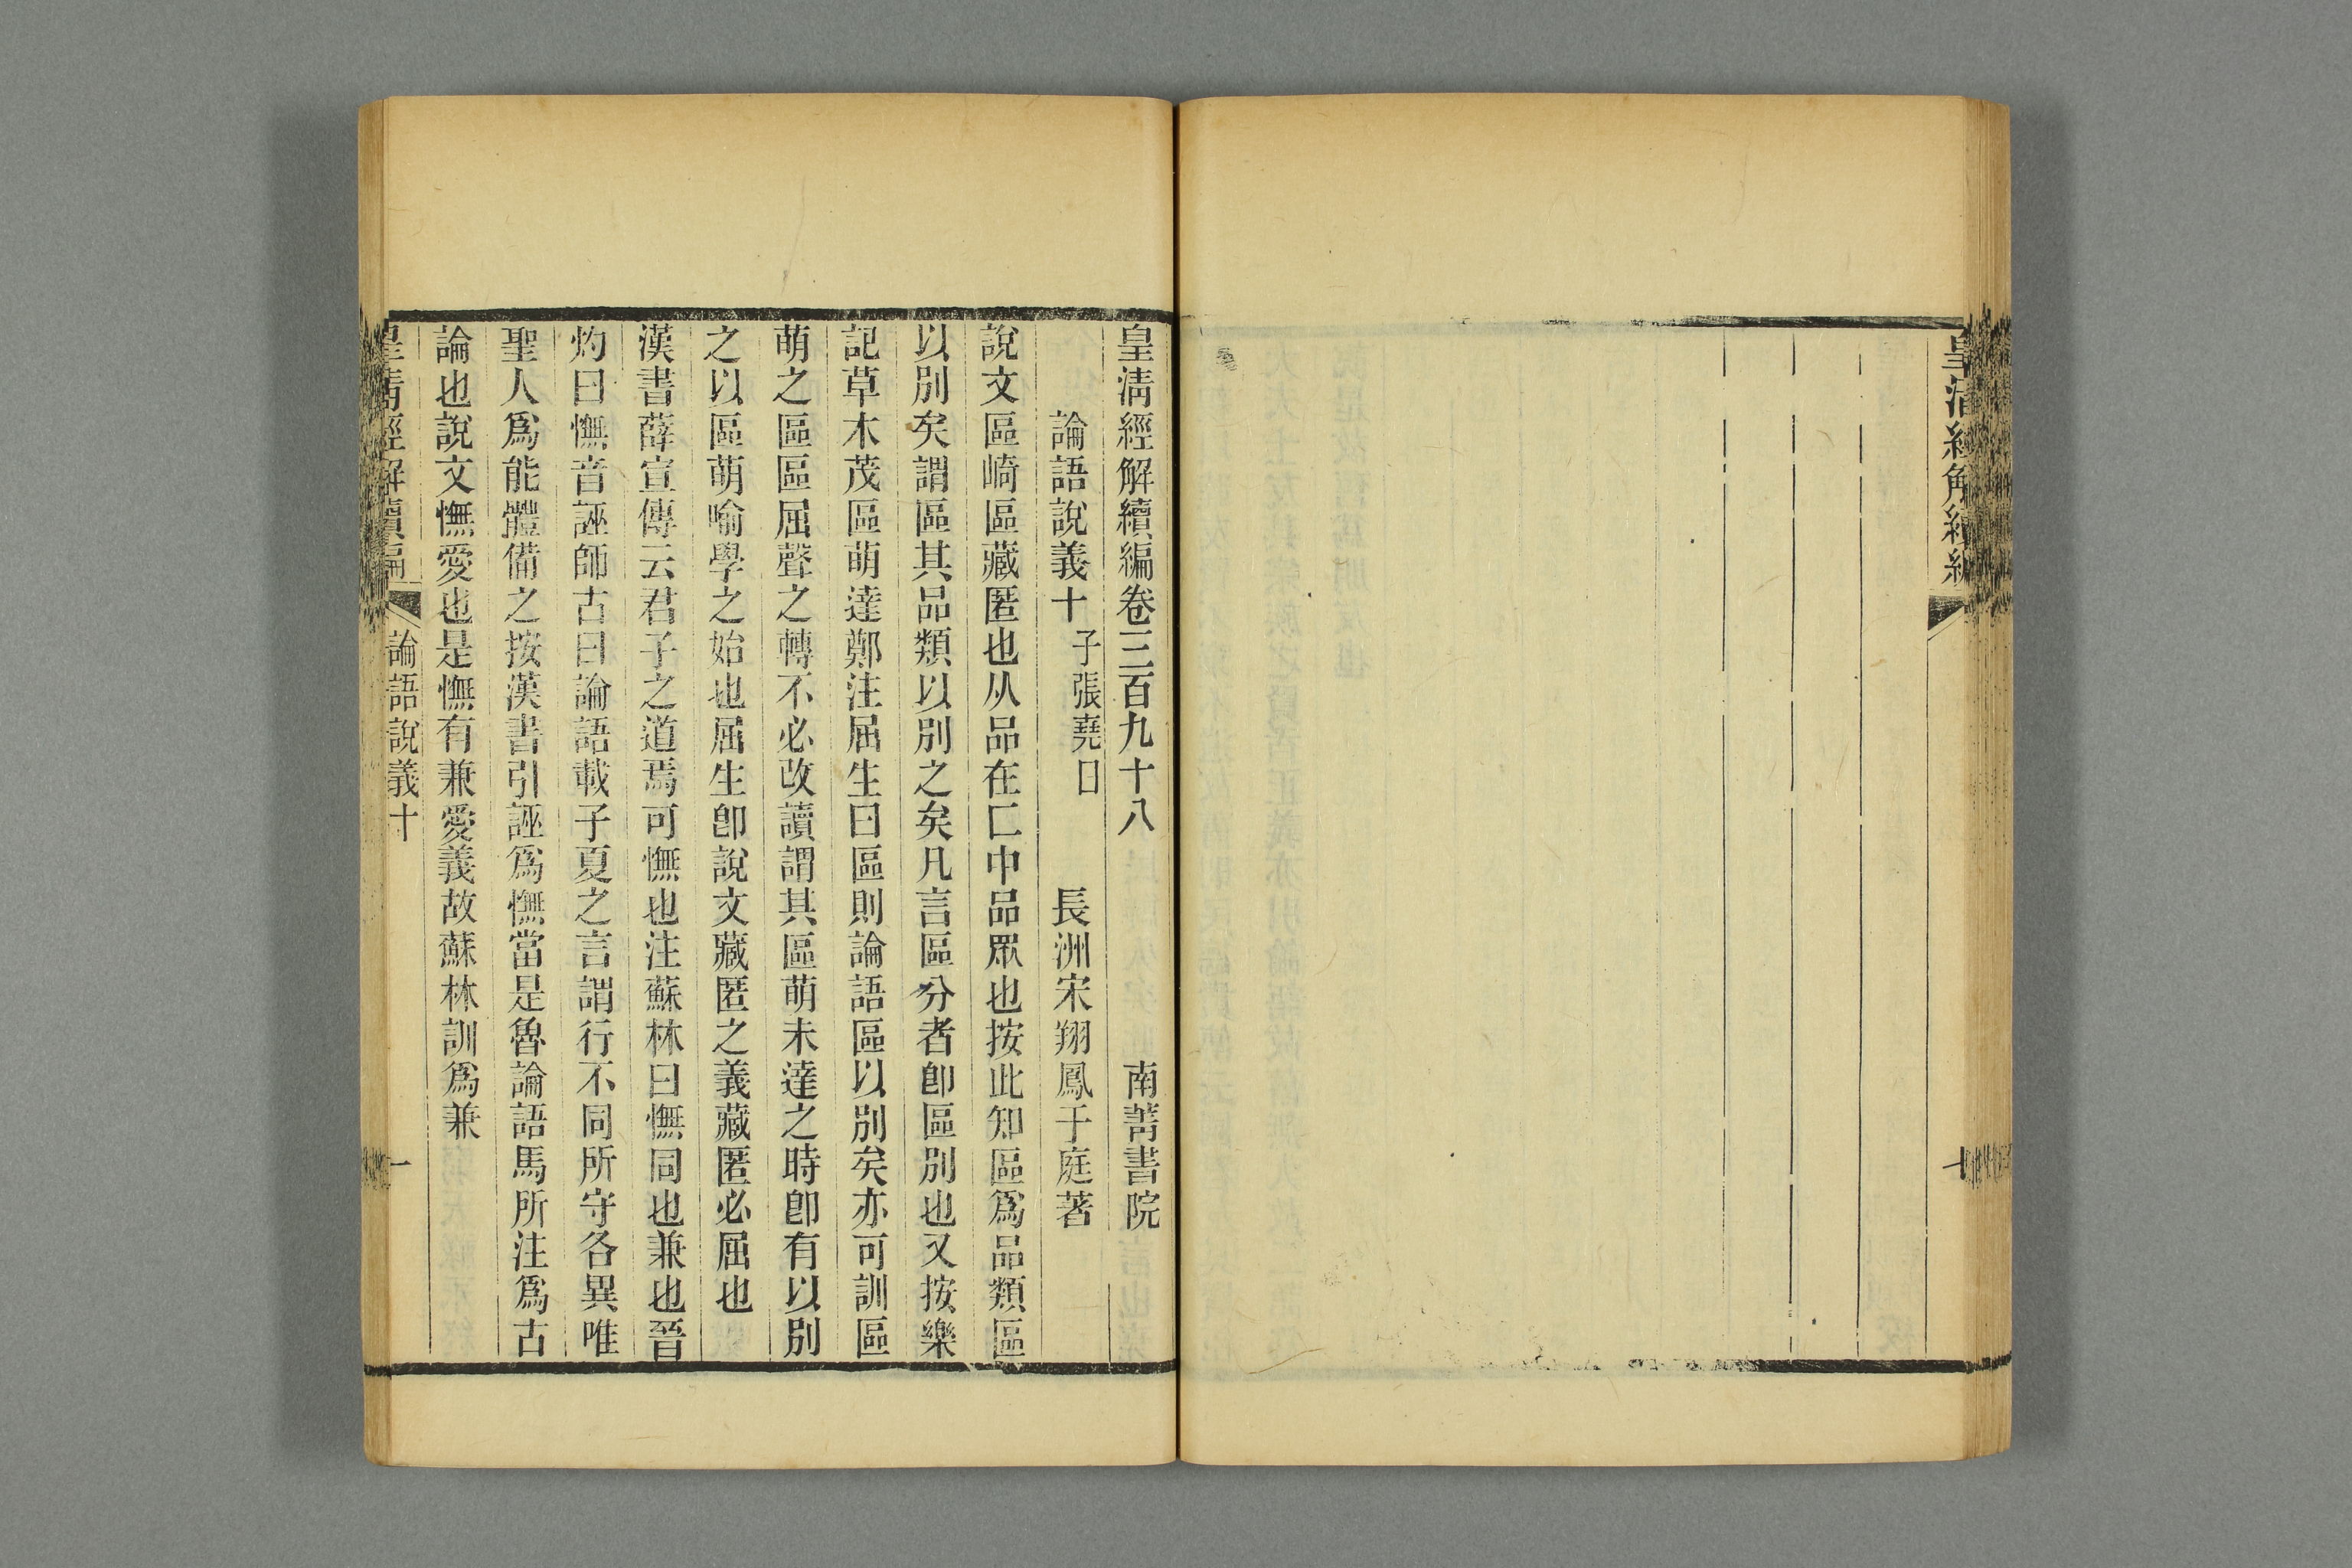 皇清經解續編
十
皇清經解續編卷三百九十八 南菁書院
論語說義十 子張堯曰 長洲宋翔鳳于庭著
說文區崎區藏匿也从品在匸中品眾也按此知區為品類區
以別矣謂區其品類以別之矣凡言區分者卽區別也又按樂
記草木茂區萌達鄭注屈生曰區則論語區以別矣亦可訓區
萌之區區屈聲之轉不必改讀謂其區萌未達之時卽有以別
之以區萌喻學之始也屈生卽說文藏匿之義藏匿必屈也
漢書薛宣傳云君子之道焉可憮也注蘇林曰憮同也兼也晉
灼曰憮音誣師古曰論語載子夏之言謂行不同所守各異唯
聖人爲能體備之按漢書引誣爲憮當是魯論語馬所注爲古
論也說文憮愛也是憮有兼愛義故蘇林訓爲兼
皇清經解續編 論語說義十 一